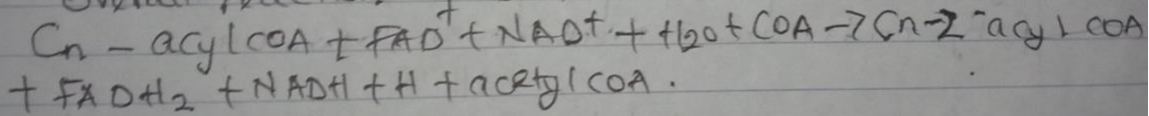 Cn - acylcoA + FAD⁺ + NAD⁺ + H2O + COA → Cn-2-acyl COA
+ FADH₂ + NADH + H + acetylcoA.